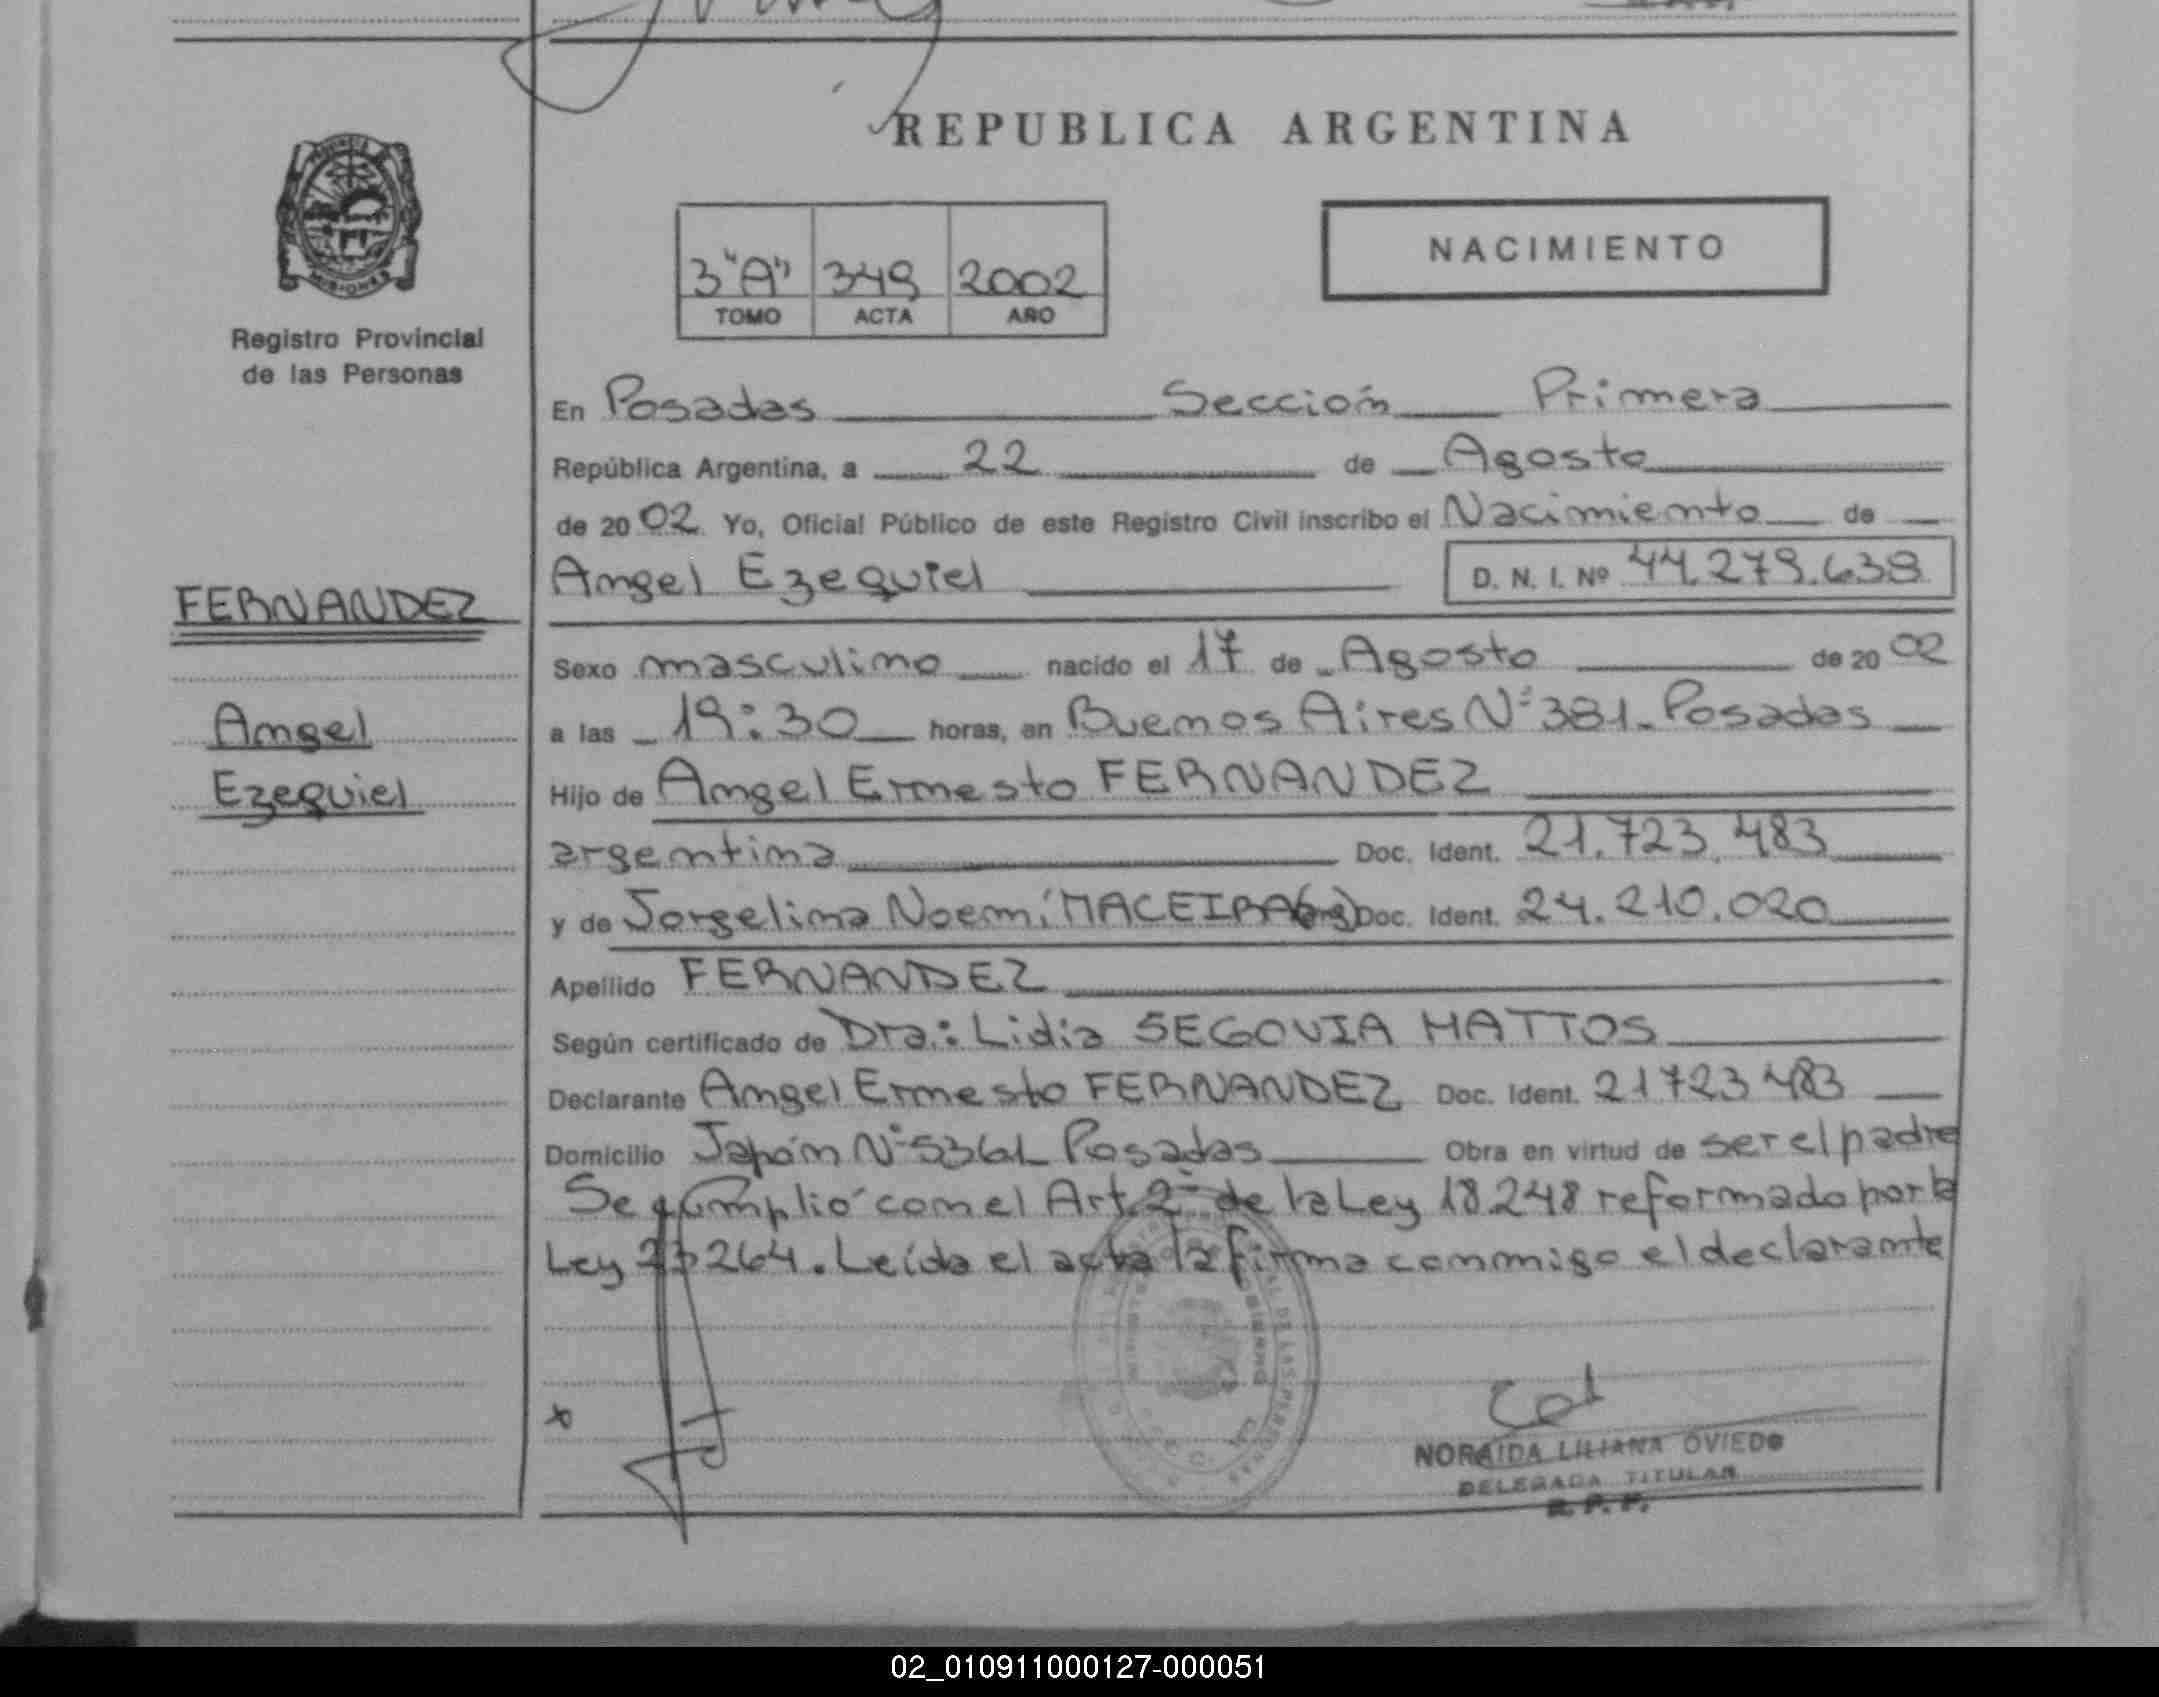 REPUBLICA ARGENTINA
3"A" 349 2002
TOMO ACTA AÑO
NACIMIENTO
Registro Provincial
de las Personas
En Posadas Sección Primera
República Argentina, a 22 de Agosto
de 2002 Yo, Oficial Público de este Registro Civil inscribo el Nacimiento de
Angel Ezequiel D. N. I. Nº 44.279.639
FERNANDEZ
Sexo masculino nacido el 17 de Agosto de 2002
Angel
a las 19:30 horas, en Buenos Aires Nº 381. Posadas
Ezequiel
Hijo de Angel Ernesto FERNANDEZ
argentina Doc. Ident. 21.723.483
y de Jorgelina Noemí MACEIRA (arg) Doc. Ident. 24.210.020
Apellido FERNANDEZ
Según certificado de Dra.: Lidia SEGOVIA MATTOS
Declarante Angel Ernesto FERNANDEZ Doc. Ident. 21723483
Domicilio Japón Nº 5361 Posadas Obra en virtud de ser el padre
Se cumplió con el Art. 2º de la Ley 18248 reformado por la
Ley 23264. Leída el acta la firma conmigo el declarante
NORAIDA LILIANA OVIEDO
DELEGADA TITULAR
R. P. P.
02_010911000127-000051